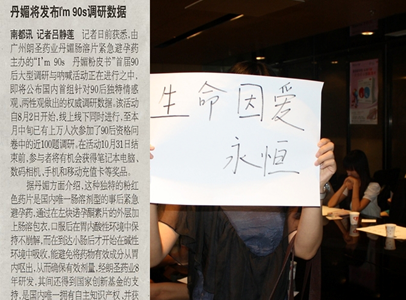 丹媚将发布I'm 90s调研数据
南都讯 记者吕静莲 记者日前获悉,由
广州朗圣药业丹媚肠溶片紧急避孕药
主办的“I'm 90s 丹媚粉皮书”首届90
后大型调研与呐喊活动正在进行之中,
即将公布国内首组针对90后独特情感
观,两性观做出的权威调研数据,该活动
自8月2日开始,线上线下同时进行,至本
月中旬已有上万人次参加了90后资格问
卷中的近100题调研,在活动10月31日结
束前,参与者将有机会获得笔记本电脑,
数码相机,手机和移动充值卡等奖品。
据丹媚方面介绍,这种独特的粉红
色药片是国内唯一肠溶剂型的事后紧急
避孕药,通过在左炔诺孕酮素片的外层加
上肠溶包衣,口服后在胃内酸性环境中保
持不崩解,而在到达小肠才开始在碱性
环境中吸收,能避免将药物有效成分从胃
内呕出,从而确保有效剂量,经朗圣药业8
年研发,其间还得到国家创新基金的支
持,是国内唯一拥有自主知识产权,并获
生命因爱
永恒